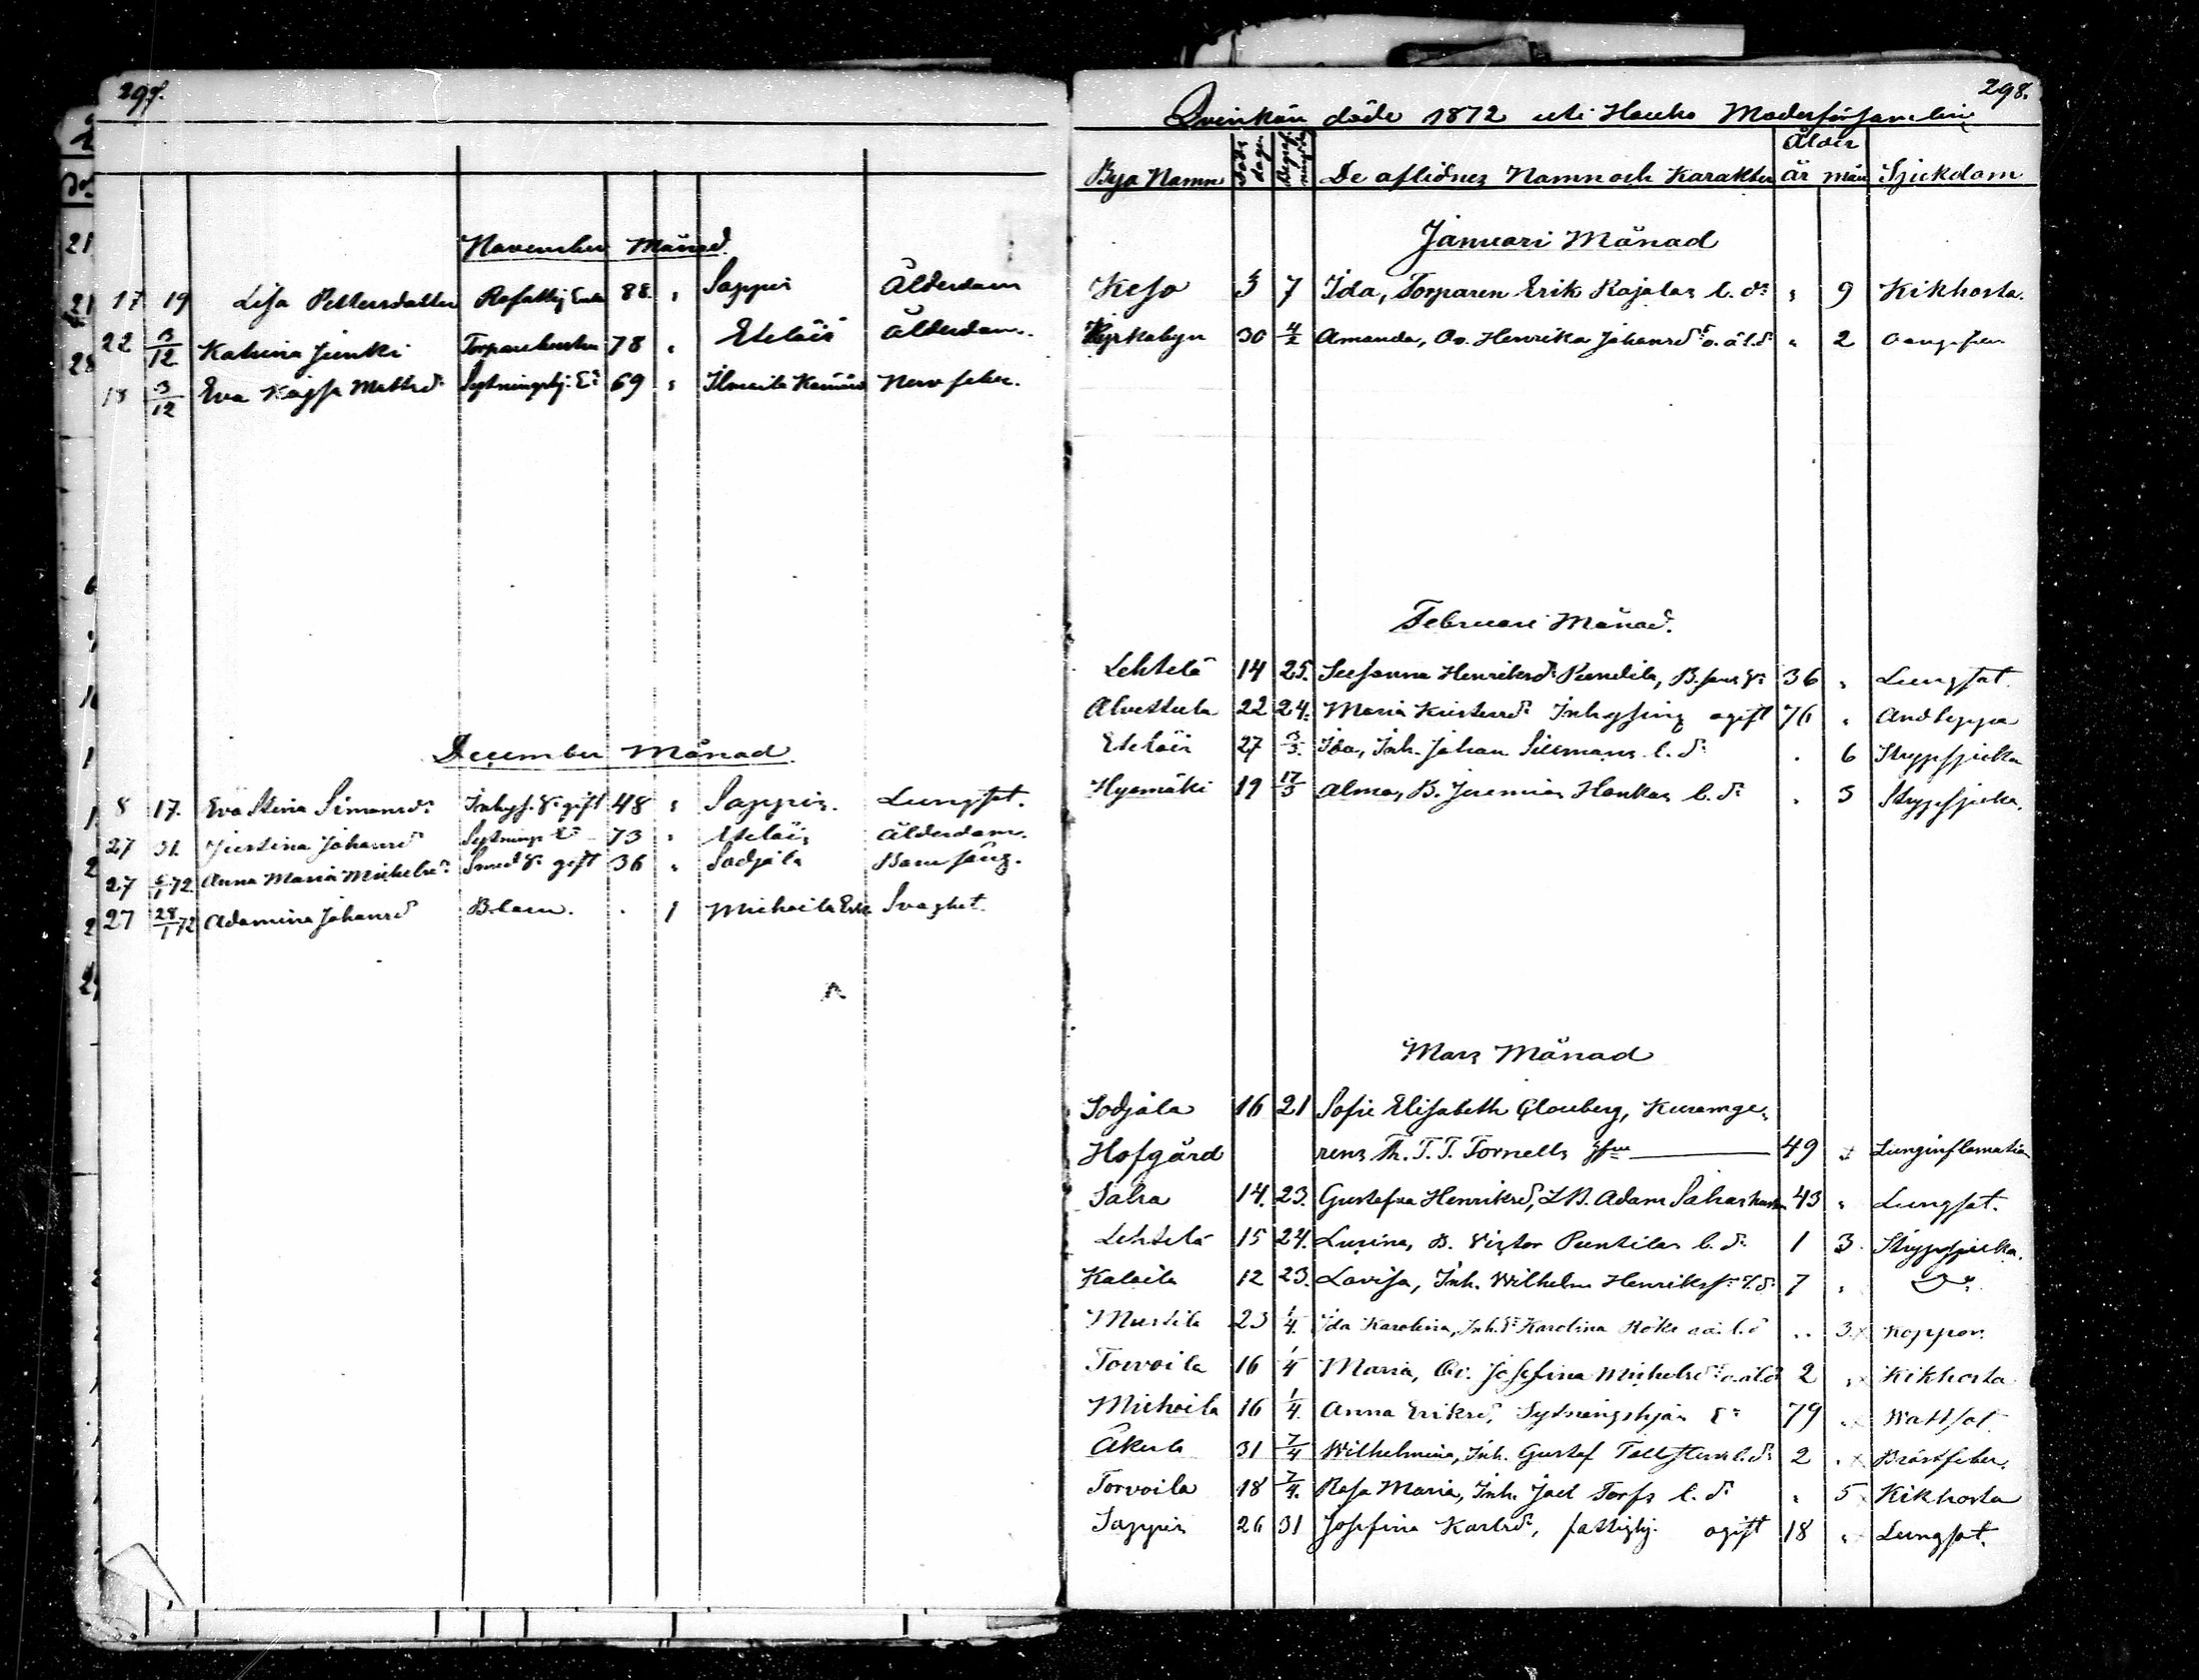 297.
November Månad.
17 19 Lisa Pettersdotter Rofattihj Enka 88. " Sappis Ålderdom
22 3/12 Katrina Junki Torparehustru 78 " Eteläis Ålderdom.
18 3/12 Eva Kajsa Mattsdr Sytningshj. Ea 69 " Nerv feber.
December Månad
8 17. Eva Stina Simonsdr Inhys. gift 48 " Sappis. Lungsot.
27 31. Justina Johansd Sytnings Ea 73 " Eteläis Ålderdom.
27 1/72 Anna Maria Michelsdr Smed gift 36 " Sodjala Barnsäng.
27 28/1 72 Adamina Johansd B. barn. . 1 Michoila Svaghet.
298.
Qvinkön döde 1872 uti Hauho Moderförsamling
Ålder
Bya Namn Döds dagen Begrafnings De aflidnes Namn och Karakter år mån Sjukdom
Januari Månad
Keso 3 7 Ida, Torparen Erik Kajalas b. dr " 9 Kikhosta.
Kyrkobyn 30 4/2 Amanda, Qv. Henrika Johansdrs o. ä b. d " 2 oangifven
Februari Månad.
Lehtelä 14 25. Susanna Henriksdr Pundila, B. 36 " Lungsot.
Alvettula 22 24. Maria Kristersdr Inhysing ogift 76 " Andtäppa
Eteläis 27 3/3. Ida, Inh. Johan Silomans b. dr . 6 Strypsjuka
Hyömäki 19 17/3 Alma, B. Jeremias Honkas b. dr . 3 Strypsjuka.
Mars Månad
Sodjala 16 21 Sofie Elisabeth Glouberg, Kuramge,
Hofgård rens Th. T. T. Tornells 49 " Lunginflamation
Saha 14. 23. Gustafva Henriksd, LB. Adam Sahas hustru 43 " Lungsot.
Lehtelä 15 24. Lusina, B. Victor Puntilas b. dr 1 3 Strypsjuka.
Kalaila 12 23. Lovisa, Inh. Wilhelm Henrikss b. dr 7 " Do
Mustila 23 1/4. Ida Karolina, Inh. Karolina Höks oä. b. d .. 3 Koppor.
Torvoila 16 1/4 Maria, Qv. Josefina Michelsdrs o. ä b. d 2 " Kikhosta
Michoila 16 1/4. Anna Eriksd, Sytningshjon Ea 79 " Wattsot
Åkerla 31 7/4 Wilhelmina, Inh. Gustaf b. dr 2 " Bröstfeber.
Torvoila 18 7/4. Rosa Maria, Inh. Joel Torfs b. dr " 5 Kikhosta
Sappis 26 31 Josefina Karlsdr, fattighj. ogift 18 " Lungsot.